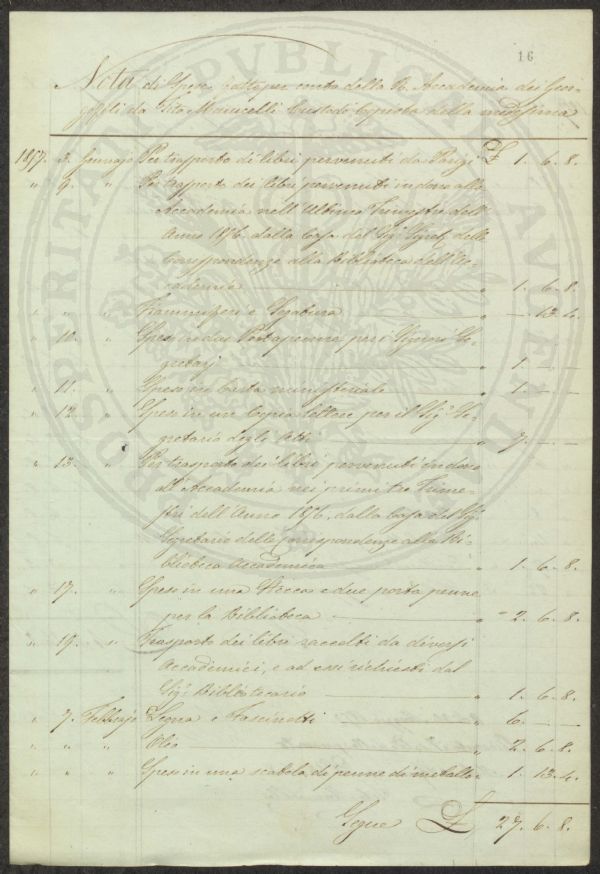 16
Nota di Spese fatte per conto della R. Accademia dei Geor-
gofili da Tito Marucelli Custode Copista della medesima
1857. 3. Gennajo Per trasporto di libri pervenuti da Parigi £ 1. 6. 8.
" 9. " Per trasporto dei libri pervenuti in dono alla
Accademia nell'Ultimo Trimestre dell'
Anno 1856. dalla Casa del Sig.r Segret. delle
Corrispondenze alla Biblioteca dell'Ac-
cademia " 1. 6. 8.
" " " Trammezzi e Segatura " — 13. 4.
" 10. " Spese in due Portapenne per i Signori Se-
gretarj " 1. — —
" 11. " Spese in Carta ministeriale " 1. — —
" 12. " Spese in un Copia lettere per il Sig.r Se-
gretario degli Atti " 7. — —
" 13. " Per trasporto dei libri pervenuti in dono
all'Accademia nei primi tre Trime-
stri dell'Anno 1856, dalla Casa del Sig.r
Segretario delle Corrispondenze alla Bi-
blioteca Accademica " 1. 6. 8.
" 17. " Spese in una Stecca e due porta penne
per la Biblioteca " 2. 6. 8.
" 19. " Trasporto dei libri raccolti da diversi
Accademici, e ad essi richiesti dal
Sig.r Bibliotecario " 1. 6. 8.
" 7. Febbrajo Legna e Fascinotti " 6. — —
" " " Olio " 2. 6. 8.
" " " Spese in una scatola di penne di metallo " 1. 13. 4.
Segue £ 27. 6. 8.
PROSPERITATI PUBLICAE AUGENDAE